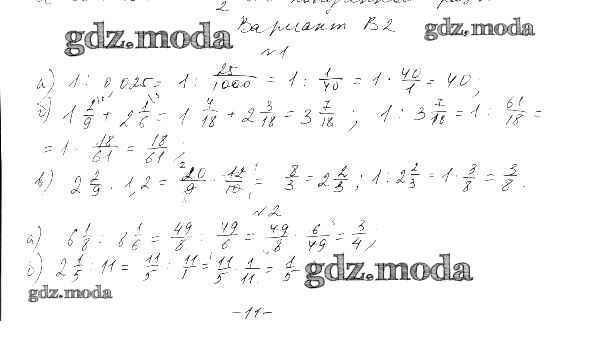 Вариант В2
gdz.moda
gdz.moda
№1
а) 1 : 0,025 = 1 : 25/1000 = 1 : 1/40 = 1 · 40/1 = 40;
б) 1 2/9 + 2 1/6 = 1 4/18 + 2 3/18 = 3 7/18 ; 1 : 3 7/18 = 1 : 61/18 =
= 1 · 18/61 = 18/61 ;
в) 2 2/9 · 1,2 = 20/9 · 12/10 = 8/3 = 2 2/3 ; 1 : 2 2/3 = 1 · 3/8 = 3/8 .
№2
а) 6 1/8 : 8 1/6 = 49/8 : 49/6 = 49/8 · 6/49 = 3/4 ;
б) 2 1/5 : 11 = 11/5 : 11/1 = 11/5 · 1/11 = 1/5
gdz.moda
gdz.moda
-11-